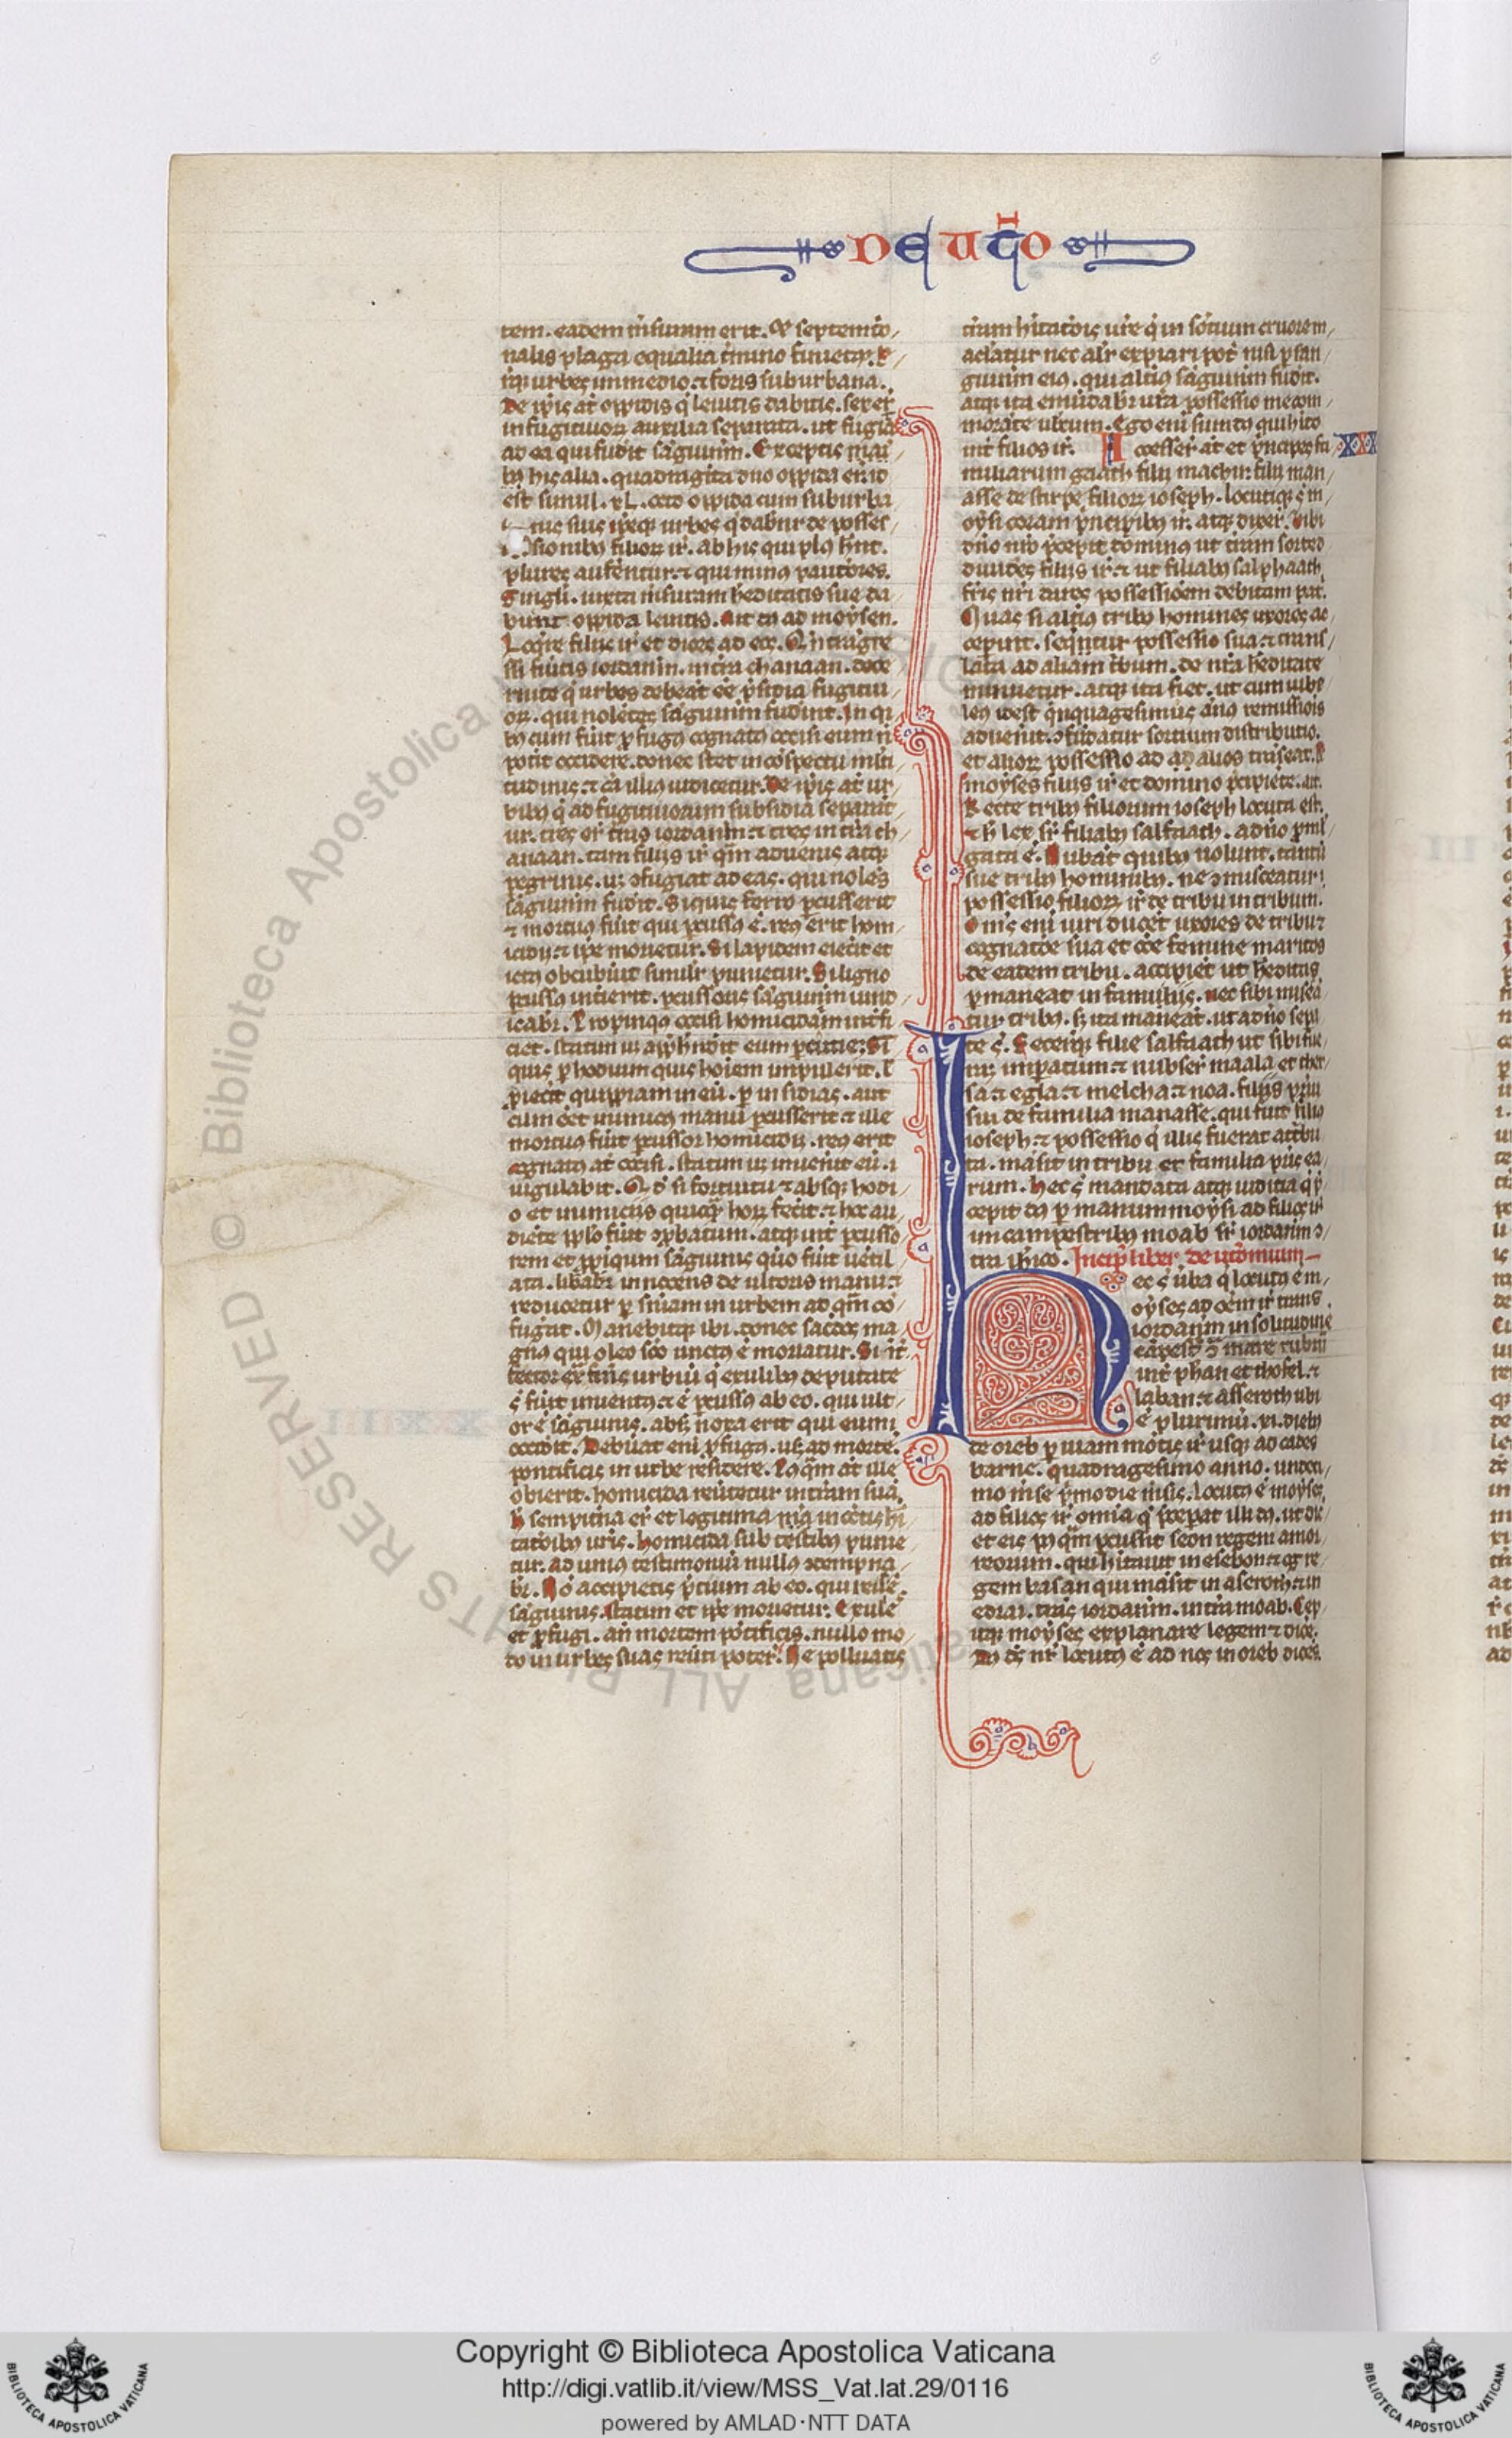 DEUTO
tem. eadem mensuram erit. Et septemtrio
nalis plaga equali termino finietur.
urbes in medio et foris suburbana.
De ipsis at oppidis que leuitis dabitis. sex erunt
in fugitiuorum auxilia separata. ut fugiat
ad ea qui fudit sanguinem. Exceptis
his alia. quadraginta duo oppida erunt. id
est simul .xl. octo oppida cum suburba
nis suis ipseque urbes que dabuntur de posses
sionibus filiorum isrl. ab his qui plus habent.
plures auferentur et qui minus pauciores.
Singuli. iuxta mensuram hereditatis sue da
bunt oppida leuitis. Ait dominus ad moysen.
Loquere filiis isrl et dices ad eos. Quando transgre
ssi fueritis iordanem. in terra chanaan. dece
rnite que urbes debeant esse presidia fugitiu
orum. qui nolentes sanguinem fuderint. In qui
bus cum fuerit profugus cognatus occisi eum non
poterit occidere. donec stet in conspectu multi
tudinis et causa illius iudicetur. De ipsis at ur
bibus que ad fugitiuorum subsidia separant
ur. tres erunt trans iordanem et tres in terra ch
anaan. tam filiis isrl quam aduenis atque
peregrinis. ut confugiat ad eas. qui nolens
sanguinem fuderit. Siquis ferro percusserit
et mortuus fuerit qui percussus est. reus erit hom
icidii et ipse morietur. Si lapidem iecerit et
ictus obcubuerit similiter punietur. Si ligno
percussus interierit. percussoris sanguinem uind
icabitur. Propinquus occisi homicidam interfi
ciet. statim ut apprehenderit eum percutiet. Si
quis per hodium quis hominem impulerit. uel
proiecerit quippiam in eum per insidias. aut
cum esset inimicus manu percusserit et ille
mortuus fuerit percussor homicidii. reus erit
cognatus at occisi. statim ut inuenerit eum. i
ugulabit. Quod si fortuitu et absque hodi
o et inimiciis quicquam horum fecerit et hoc au
diente populo fuerit comprobatum. atque inter percusso
rem et propinqum sanguinis questio fuerit uentil
ata. liberabitur innocens de ultoris manu et
reducetur per sententiam in urbem ad quam con
fugerat. Manebitque ibi. donec sacerdos ma
gnus qui oleo sancto unctus est moriatur. Si inter
fector extra fines urbium que exulibus deputate
sunt fuerit inuentus et percussus ab eo. qui ult
or est sanguinis. absque noxa erit qui eum
occiderit. Debuerat enim profugus. usque ad mortem
pontificis in urbe residere. Postquam at ille
obierit. homicida reuertetur in terram suam.
Hec sempiterna erunt et legitima in cunctis habi
tationibus uestris. Homicida sub testibus punie
tur. ad unius testimonium nullus condempna
bitur. Non accipietis precium ab eo. qui reus est
sanguinis. statim et ipse morietur. Exules
et profugi. ante mortem pontificis. nullo mo
do in urbes suas reuerti poterunt. Ne polluatis
terram habitationis uestre que in sontium cruorem
aliter expiari potest nisi per san
guinem eius. qui alterius sanguinem fuderit.
atque ita emundabitur uestra possessio me com
morante uobiscum. Ego enim sum dominus qui habito
inter filios isrl. Accesserunt at et principes fa XXX
miliarum galath filii machir. filii man
asse de stirpe filiorum ioseph. locutique sunt m
oysi coram principibus isrl. atque dixerunt. Tibi
domino nostro precepit dominus ut terram sorte
diuideres filiis isrl et ut filiabus salphaath
fratris nostri dares possessionem debitam patri.
Quas si alterius tribus homines uxores ac
ceperint. sequitur possessio sua et trans
lata ad aliam tribum. de nostra hereditate
minuetur. atque ita fiet. ut cum iube
leus idest quinquagesimus annus remissionis
aduenerit. confundatur sortium distributio.
et aliorum possessio ad ad alios transeat. R
moyses filiis isrl et domino precipiente. ait.
Recte tribus filiorum ioseph locuta est.
et hec lex super filiabus salfaach. a domino promul
gata est. Nubant quibus uolunt. tantum
sue tribus hominibus. ne commisceatur
possessio filiorum isrl de tribu in tribum.
Omnes enim uiri ducent uxores de tribu et
cagnatione sua et cuncte femine maritos
de eadem tribu. accipient ut hereditas
permaneat in familiis. nec sibi miscean
tur tribus. sed ita maneant. ut a domino sepa
te sunt. Feceruntque filie salfaach ut sibi fue
rat imperatum et nupserunt maala et ther
sa et egla et melcha et noa. filiis patrui
sui de familia manasse. qui fuit filius
ioseph et possessio que illis fuerat attribu
ta. mansit in tribu et familia patris ea
rum. Hec sunt mandata atque iudicia que pre
cepit dominus per manum moysi ad filios isrl
in campestribus moab super iordanem con
tra iherico. Incipit liber deutronomium
Hec sunt uerba que locutus est m
oyses ad omnem isrl trans
iordanem in solitudine
campestri contra mare rubrum
inter phan et thofel et
laban et asseroth ubi
est plurimum. xi. diebus
de oreb per uiam montis isrl usque ad cades
barne. quadragesimo anno. undeci
mo mense prima die mensis. locutus est moyses
ad filios isrl omnia que preceperat illi dominus. ut dic
et eis postquam percussit seon regem amor
reorum. qui habitauit in esebon et og re
gem basan qui mansit in aseroth et in
edrai. trans iordanem. in terra moab. Cep
itque moyses explanare legem et dicere.
Dominus deus noster locutus est ad nos in oreb dicens.
© Biblioteca Apostolica Vaticana ALL RIGHTS RESERVED
Copyright © Biblioteca Apostolica Vaticana
http://digi.vatlib.it/view/MSS_Vat.lat.29/0116
powered by AMLAD·NTT DATA
BIBLIOTECA APOSTOLICA VATICANA
BIBLIOTECA APOSTOLICA VATICANA